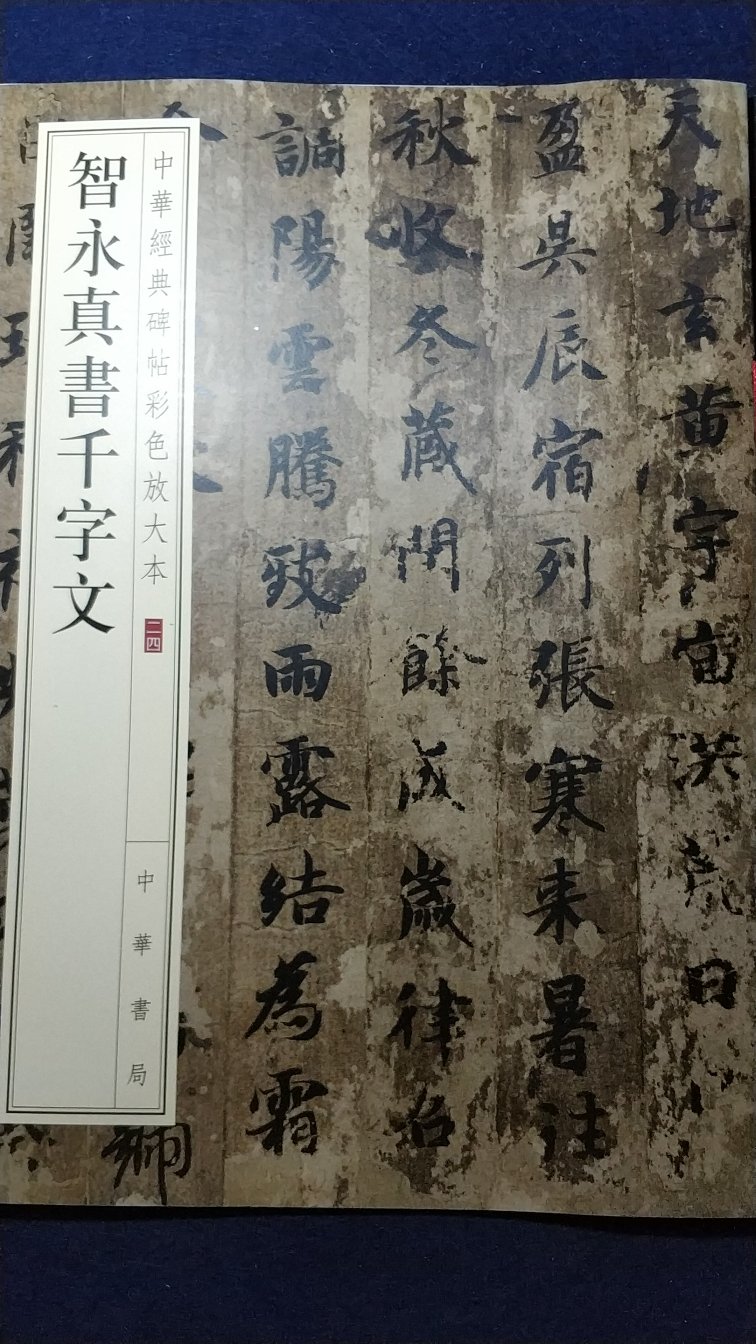 天地玄黄宇宙洪荒日
盈昃辰宿列張寒来暑往
秋收冬蔵閏餘成歳律召
調陽雲騰致雨露結為霜
中華經典碑帖彩色放大本
二四
中華書局
智永真書千字文